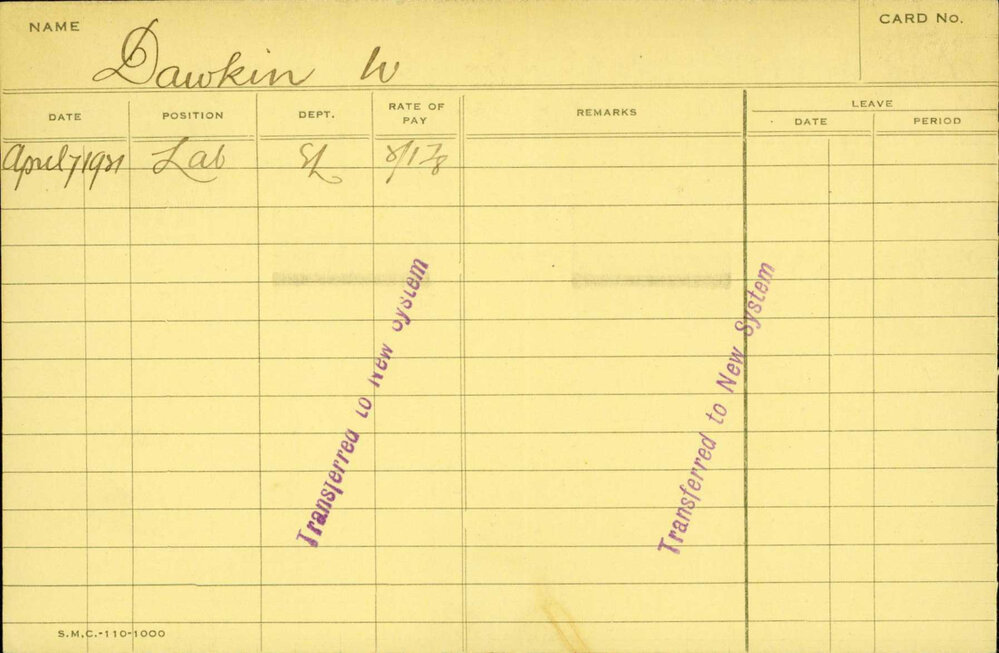 NAME Dawkin W CARD No.
DATE POSITION DEPT. RATE OF PAY REMARKS LEAVE
DATE PERIOD
April 7 1921 Lab EL
Transferred to New System
Transferred to New System
S.M.C.-110-1000